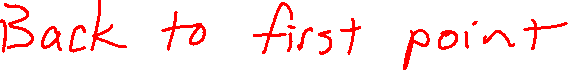 Back to first point